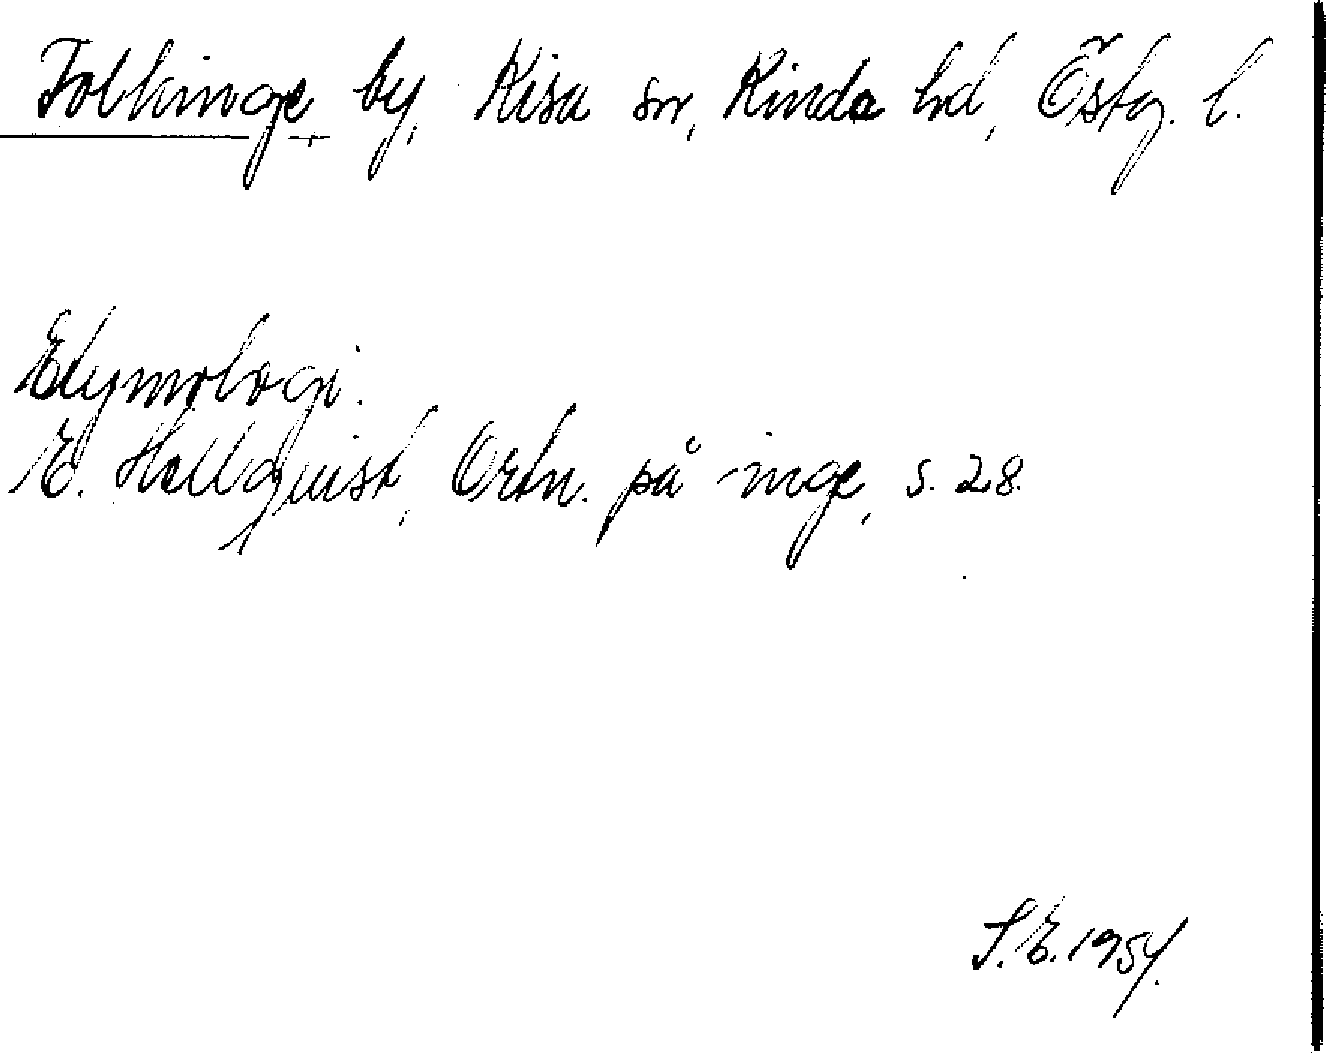 Folkinge, by, Kisa sn, Kinda hd, Östg. l.
Etymologi.
E. Hellquist, Ortn. på -inge, s. 28.
S.E. 1954.